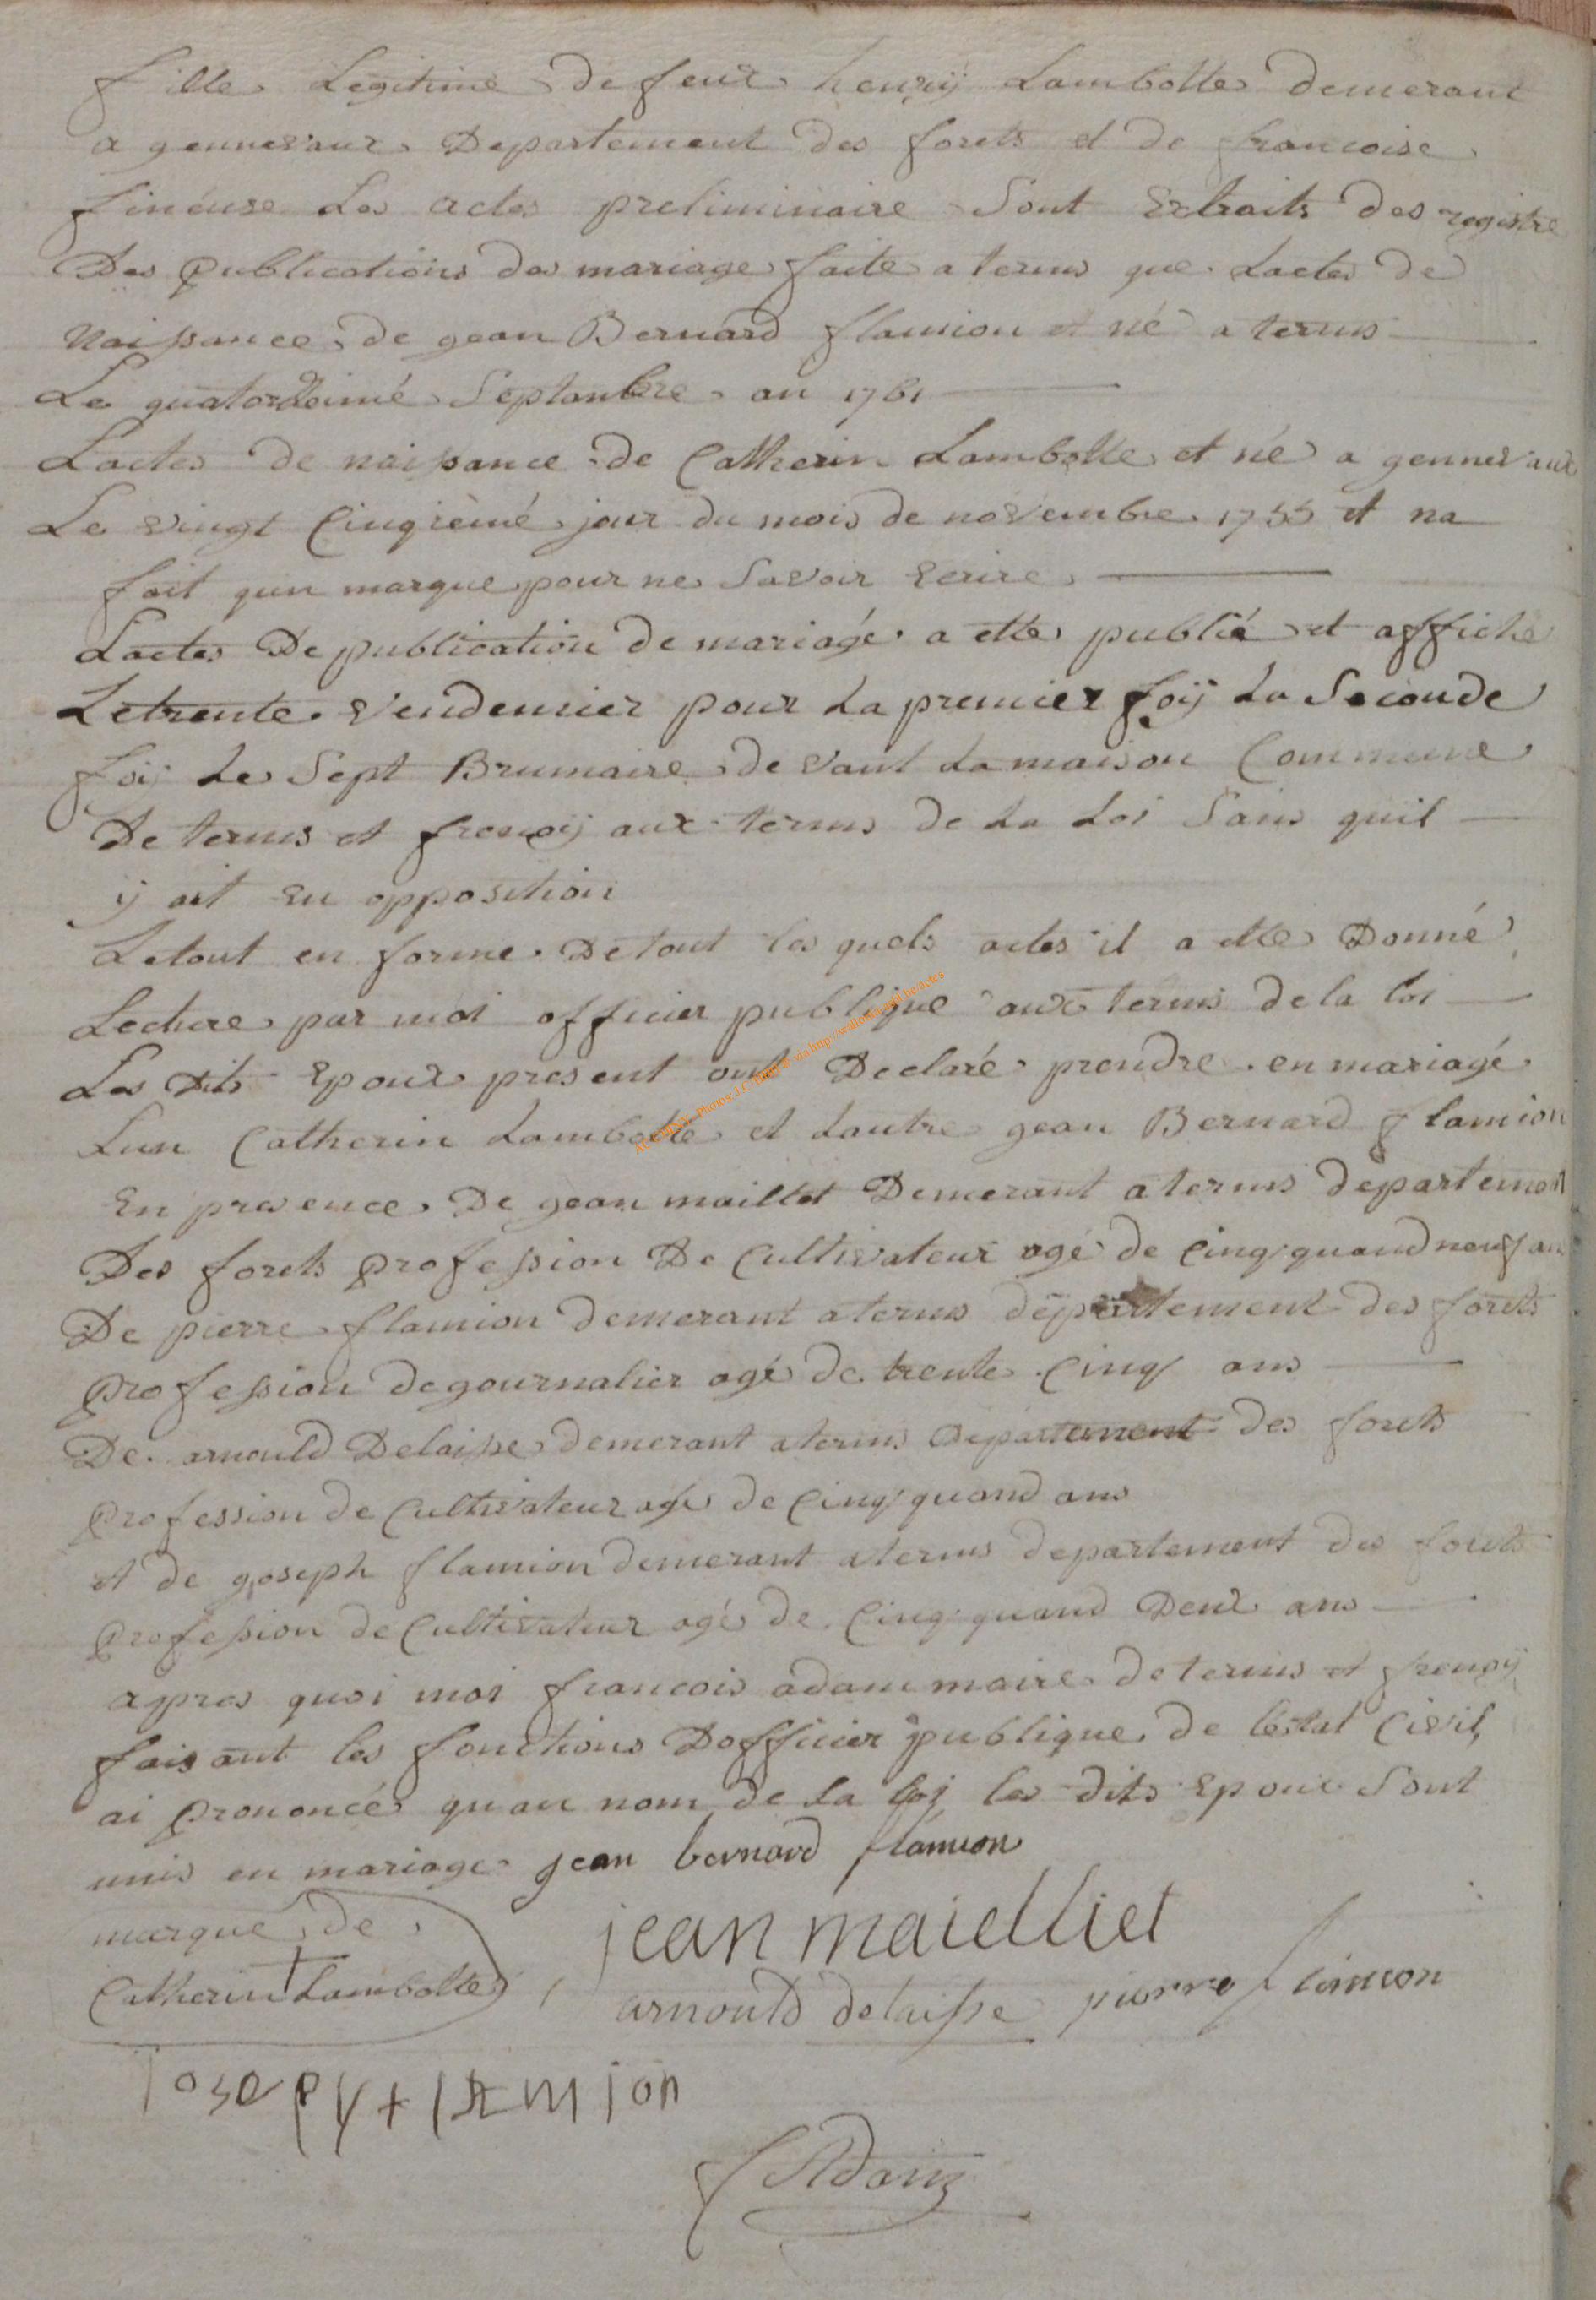 fille Legitime de feux henrÿ Lambotte demerant
a gennevaux Departement des forets et de francoise
fineuse Les actes preliminaire Sont Extraits des registre
Des publications des mariage faite a terms que Lactes de
naissance de gean Bernard flamion et né a terms
Le quatordzeimé Septambre an 1761
Lactes de naissance de Catherin Lambotte et né a gennevaux
Le vingt Cinqièmé jour du mois de novembre 1755 et na
fait qun marque pour ne Savoir Ecrire
Lactes De publication de mariagé a etté publié et affiché
Le trente vendemier pour La premier foÿ La Seconde
foÿ Le Sept Brumaire devant La maison Commune
De terms et frenoÿ aux terms de La Loi Sans quil
ÿ ait Eu opposition
Le tout en forme De tout les quels actes il a etté Donné
Lecture par moi officier publique aux terms de la loi
Les Dits Epoux present ont Declaré prendre en mariagé
Lun Catherin Lambotte et Lautre gean Bernard flamion
En presence De gean maillet Demerant a terms departement
Des forets profession De Cultivateur agé de Cinq quand neuf an
De pierre flamion demerant a terms departement des forets
profession de gournalier agé de trente Cinq ans
De arnould Delaisse demerant a terms departement des forets
profession de Cultivateur agé de Cinq quand ans
et de goseph flamion demerant a terms departement des forets
profession de Cultivateur agé de Cinq quand Deux ans
apres quoi moi francois adam maire de terms et frenoÿ
faisant les fonctions Dofficier publique de lestat Civil,
ai prononcé quau nom de la loj les dits Epoux Sont
unis en mariage jean bernard flamion
marque de
Catherin + Lambotte
jean maielliet
arnould delaisse pierre flamion
Joseph flamion
f Adam